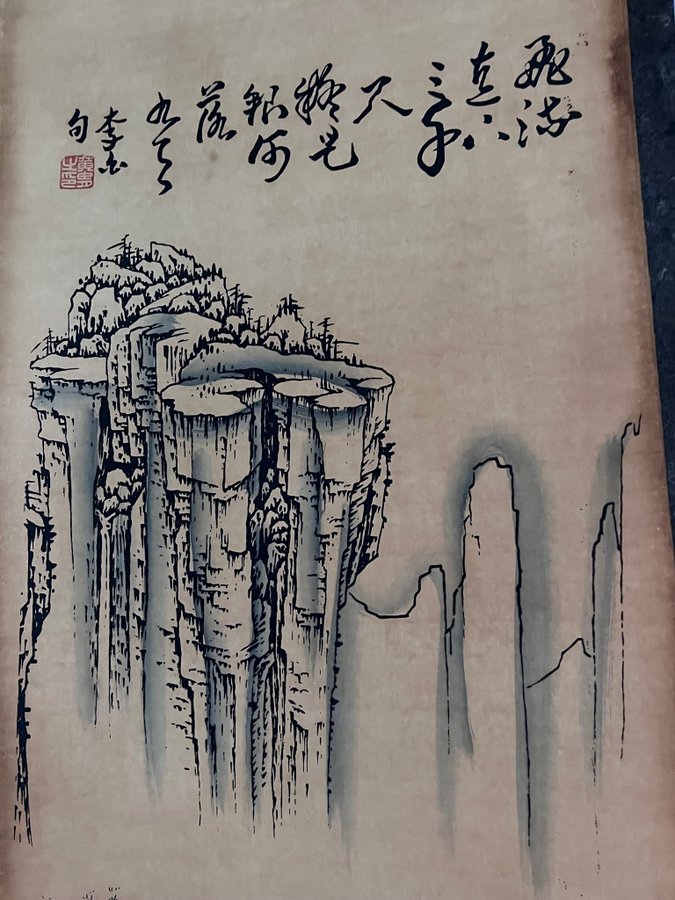 飛流
直下
三千
尺
疑是
銀河
落
九天
李白
句